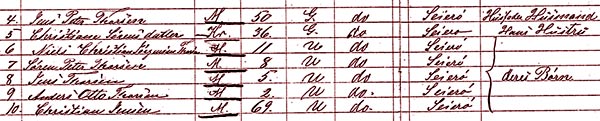 4. Jens Peter Thorsen M. 50 G. do Seierö Husfader Huusmand
5 Christiane Sörensdatter Kv. 36 G. do Seierö Hans Hustru
6 Niels Christian M. 11 U do Seierö
7 Sören Peter Thorsen M. 8 U do Seierö
8 Jens Thorsen M 5 U do Seierö deres Börn
9 Anders Otto Thorsen M 2. U do. Seierö
10. Christian Jensen M. 69. U do Seierö